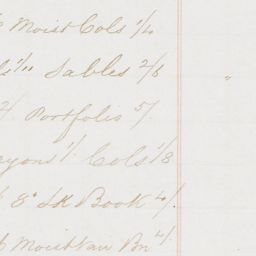 Moist Cols 1/4
1/11 Sables 2/6
2/. Portfolio 5/.
yons 1/. Cols 1/8
8° Sk Book 4/.
Moist Bn 2/.